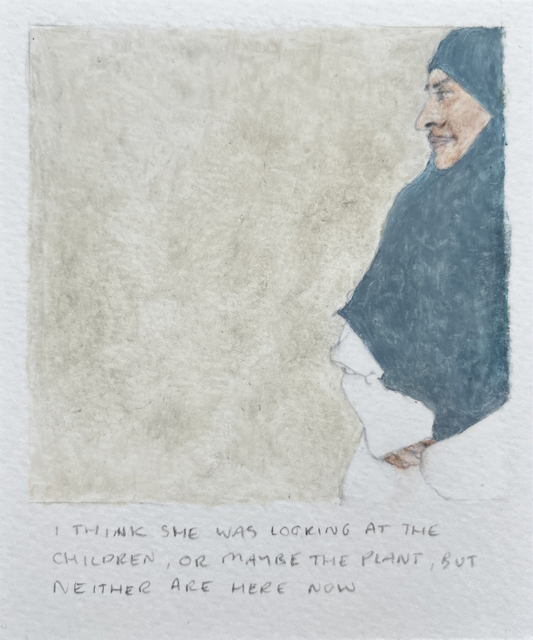 I THINK SHE WAS LOOKING AT THE
CHILDREN, OR MAYBE THE PLANT, BUT
NEITHER ARE HERE NOW